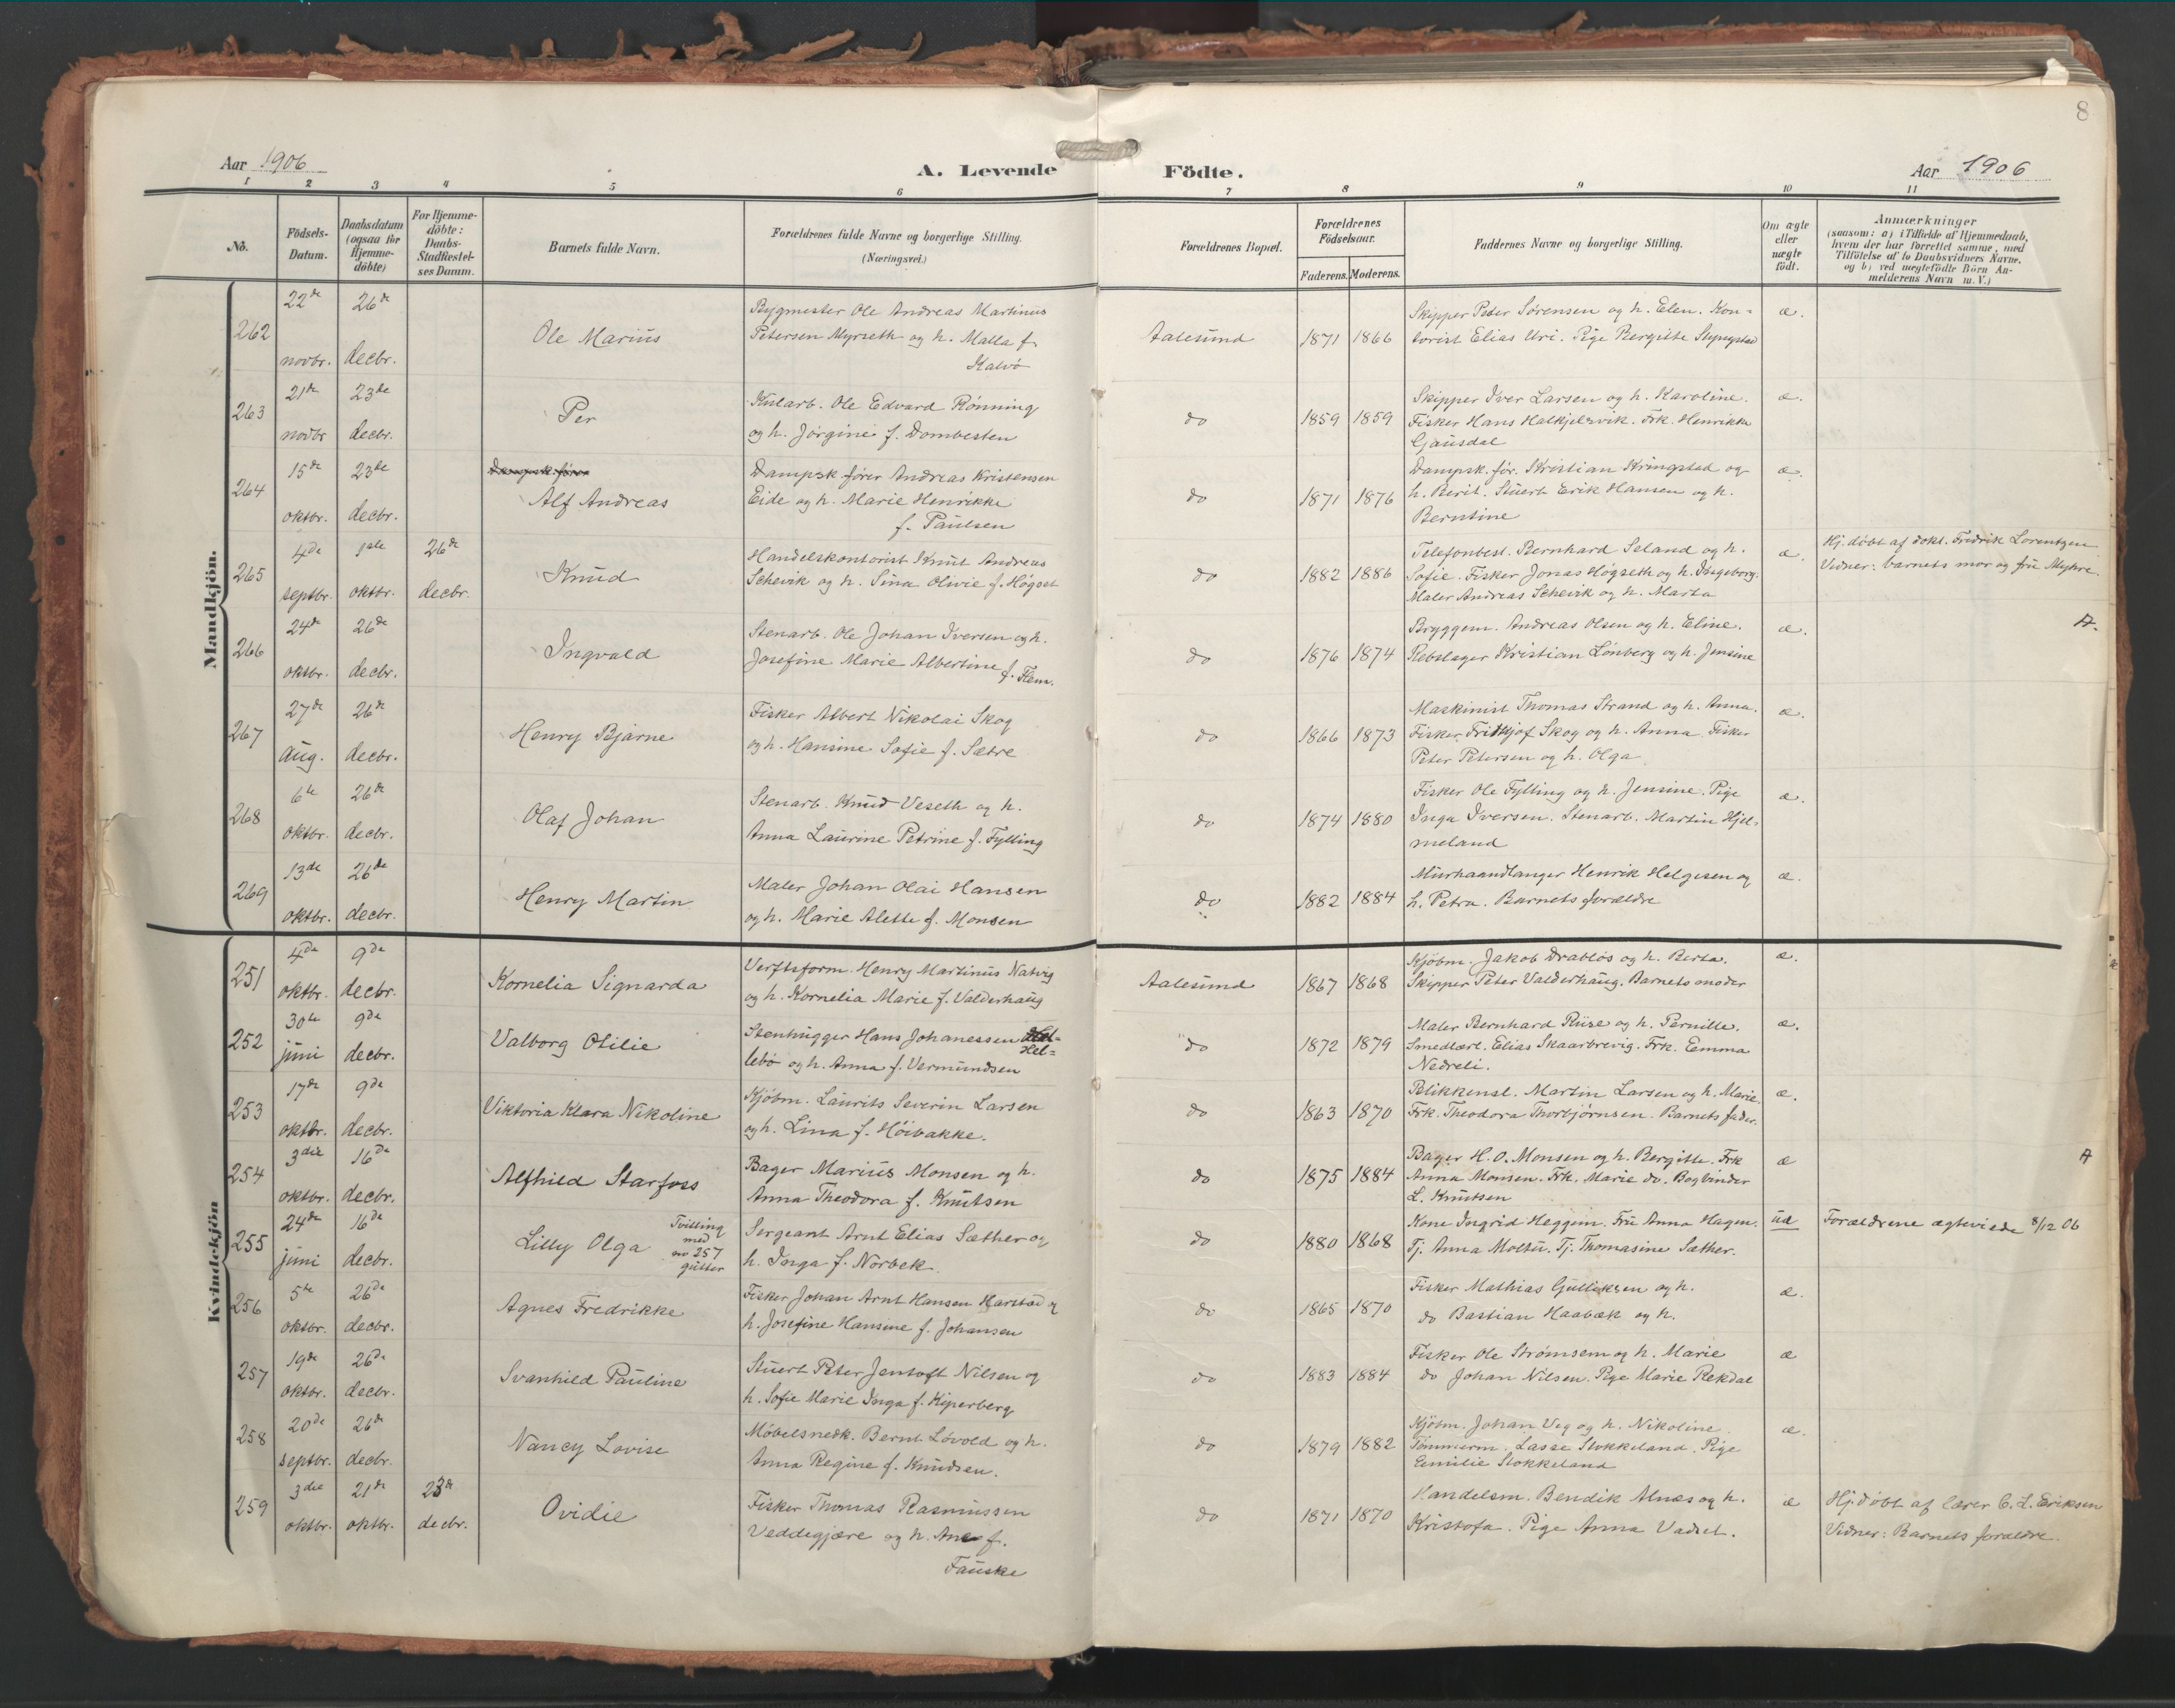 8
Aar 1906
A. Levende Födte.
Aar 1906
1 2 3 4 5 6 7 8 9 10 11
No.
Födsels-Datum.
Daabsdatum (ogsaa for Hjemme-döbte)
For Hjemme-döbte: Daabs-Stadfæstel-ses Datum.
Barnets fulde Navn.
Forældrenes fulde Navne og borgerlige Stilling.
(Næringsvei.)
Forældrenes Bopæl.
Forældrenes Födselsaar.
Faderens. Moderens.
Faddernes Navne og borgerlige Stilling.
Om ægte eller uægte födt.
Anmærkninger
(saasom: a) i Tilfælde af Hjemmedaab,
hvem der har forrettet samme, med
Tilföielse af to Daabsvidners Navne,
og b) ved uægtefödte Börn An-
melderens Navn m. V.)
Mandkjön.
262 22de novbr. 26de decbr.
Ole Marius
Bygmester Ole Andreas Martinus
Petersen Myrseth og h. Malla f.
Kalvø
Aalesund 1871 1866
Skipper Peder Sørensen og h. Elen. Kon-
torist Elias Uri. Pige Bergitte
æ.
263 21de novbr 23de decbr.
Per
Kularb. Ole Edvard Rønning
og h. Jørgine f. Dombesten
do 1859 1859
Skipper Iver Larsen og h. Karoline.
Fisker Hans Halkjelsvik. Frk. Henrikke
Gjausdal
æ.
264 15de oktbr. 23de decbr.
Dampsk. fører
Alf Andreas
Dampsk. fører Andreas Kristensen
Eide og h. Marie Henrikke
f. Paulsen
do 1871 1876
Dampsk. før. Kristian Kringstad og
h. Berit. Stuert Erik Hansen og h.
Berntine
æ.
265 4de septbr. 1ste oktbr. 26de decbr.
Knud
Handelskontorist Knut Andreas
Schevik og h. Sina Olivie f. Høgset
do 1882 1886
Telefonbest. Bernhard Seland og h.
Sofie. Fisker Jonas Høgseth og h. Ingeborg.
Maler Andreas Schevik og h. Marta
æ.
Hj. døbt af dokt. Fredrik Lorentzen
Vidner: barnets mor og fru Myhre.
266 24de oktbr. 26de decbr.
Ingvald
Stenarb. Ole Johan Iversen og h.
Josefine Marie Albertine f. Flem.
do 1876 1874
Bryggem. Andreas Olsen og h. Eline.
Rebslager Kristian Lønberg og h. Jensine
æ.
A.
267 27de aug. 26de decbr.
Henry Bjarne
Fisker Albert Nikolai Skog
og h. Hansine Sofie f. Sætre
do 1866 1873
Maskinist Thomas Strand og h. Anna.
Fisker Fridtjof Skog og h. Anna. Fisker
Peter Petersen og h. Olga
æ.
268 6te oktbr. 26de decbr.
Olaf Johan
Stenarb. Knud Veseth og h.
Anna Laurine Petrine f. Fylling
do 1874 1880
Fisker Ole Fylling og h. Jensine. Pige
Inga Iversen. Stenarb. Martin Hjel-
meland
æ.
269 13de oktbr. 26de decbr.
Henry Martin
Maler Johan Olai Hansen
og h. Marie Alette f. Monsen
do 1882 1884
Murhaandlanger Henrik Helgesen og
h. Petra. Barnets forældre
æ.
Kvindekjön
251 4de oktbr. 9de decbr.
Kornelia Signarda
Verftsform. Henry Martinus Natvig
og h. Kornelia Marie f. Valderhaug
Aalesund 1867 1868
Kjøbm. Jakob Drabløs og h. Berta.
Skipper Peter Valderhaug. Barnets moder
æ.
252 30te juni 9de decbr.
Valborg Otilie
Stenhugger Hans Johanessen Hel-
lebø og h. Anna f. Vermundsen
do 1872 1879
Maler Bernhard Riise og h. Pernille.
Smedlært. Elias Skaarbrevig. Frk. Emma
Nedreli.
æ.
253 17de oktbr. 9de decbr.
Viktoria Klara Nikoline
Kjøbm. Laurits Severin Larsen
og h. Lina f. Høibakke.
do 1863 1870
Blikkensl. Martin Larsen og h. Marie.
Frk. Theodora Thorbjørnsen. Barnets fader.
æ.
254 3die oktbr. 16de decbr.
Alfhild Starfoss
Bager Marius Monsen og h.
Anna Theodora f. Knutsen
do 1875 1884
Bager H. O. Monsen og h. Bergitte. Frk
Anna Monsen. Frk. Marie do. Bogbinder
L. Knutsen
æ
A
255 24de juni 16de decbr.
Lilly Olga
Tvilling
med
no 257
gutter
Sergeant Arnt Elias Sæther og
h. Inga f. Norbek.
do 1880 1868
Kone Ingrid Heggem. Fru Anna Hagen.
Tj. Anna Moltu. Tj. Thomasine Sæther.
ud
Forældrene ægteviede 8/12 06
256 5te oktbr. 26de decbr.
Agnes Fredrikke
Fisker Johan Arnt Hansen Harstad og
h. Josefine Hansine f. Johansen
do 1865 1870
Fisker Mathias Gulliksen og h.
do Bastian Haabæk og h.
æ.
257 19de oktbr. 26de decbr.
Svanhild Pauline
Stuert Peter Jentoft Nilsen og
h. Sofie Marie Inga f. Kiperberg
do 1883 1884
Fisker Ole Strømsem og h. Marie
do Johan Nilsen. Pige Marie Rekdal
æ
258 20de septbr. 26de decbr.
Nancy Lovise
Møbelsnedk. Bernt Løvold og h.
Anna Regine f. Knudsen.
do 1879 1882
Kjøbm. Johan Veg og h. Nikoline.
Tømmerm. Lasse Stokkeland. Pige
Emilie Stokkeland
æ.
259 3die oktbr. 21de oktbr. 23de decbr.
Ovidie
Fisker Thomas Rasmussen
Veddegjære og h. Ane f.
Fauske
do 1871 1870
Handelsm. Bendik Alnæs og h.
Kristofa. Pige Anna Vadset.
æ
Hj. døbt af lærer C. L. Eriksen
Vidner: Barnets forældre.